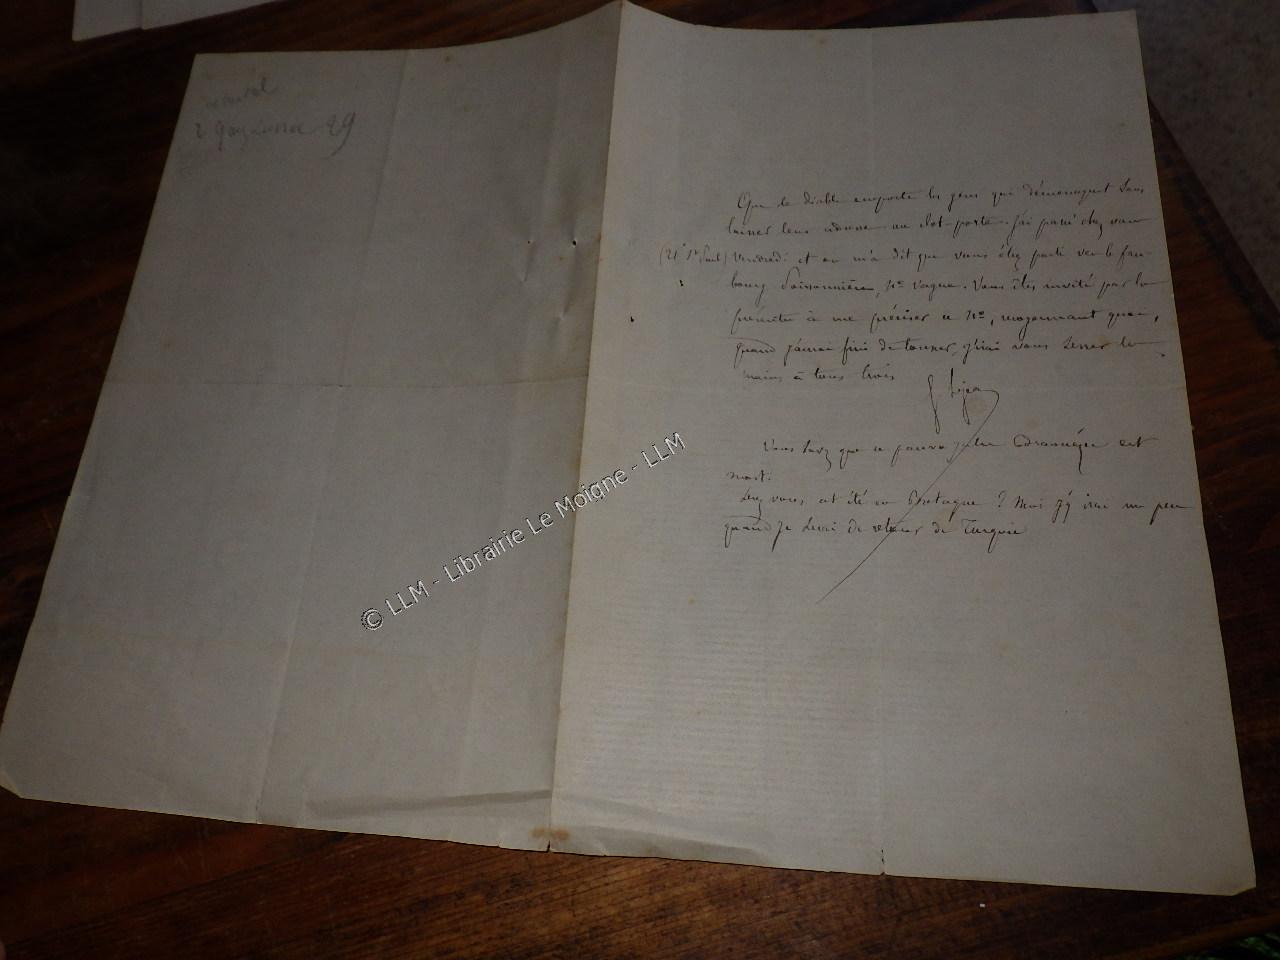 r Gay Lussac 29
Que le diable emporte les gens qui déménagent sans
laisser leur adresse au clot-porte. J'ai passé chez vous
(21 rue St Paul) Vendredi et on m'a dit que vous étiez parti vers le fau-
bourg Poissonnière, No vague. Vous êtes invité par la
présente à me préciser ce No, moyennant quoi,
quand j'aurai fini de tousser, j'irai vous serrer les
mains à tous trois
G. Lejean
Vous savez que ce pauvre est
mort.
vous été en Bretagne ? Moi j'y irai un peu
quand je serai de retour de Turquie
© LLM - Librairie Le Moigne - LLM